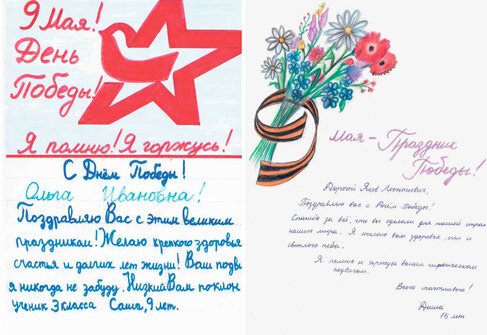 9 Мая!
День
Победы!
Я помню! Я горжусь!
С Днём Победы!
Ольга Ивановна!
Поздравляю Вас с этим великим
праздником! Желаю крепкого здоровья
счастья и долгих лет жизни! Ваш подви
я никогда не забуду. Низкий Вам поклон
ученик 3 класса Саша, 9 лет.
Мая - Праздник
Победы!
Дорогой Яков Леонтьевич,
Поздравляю вас с Днём Победы!
Спасибо за всё, что вы сделали для нашей стран
нашего мира. Я желаю вам здоровья, сил и
светлого неба.
Я помню и горжусь вашим героическим
подвигом.
Всего счастливого!
Даша
15 лет